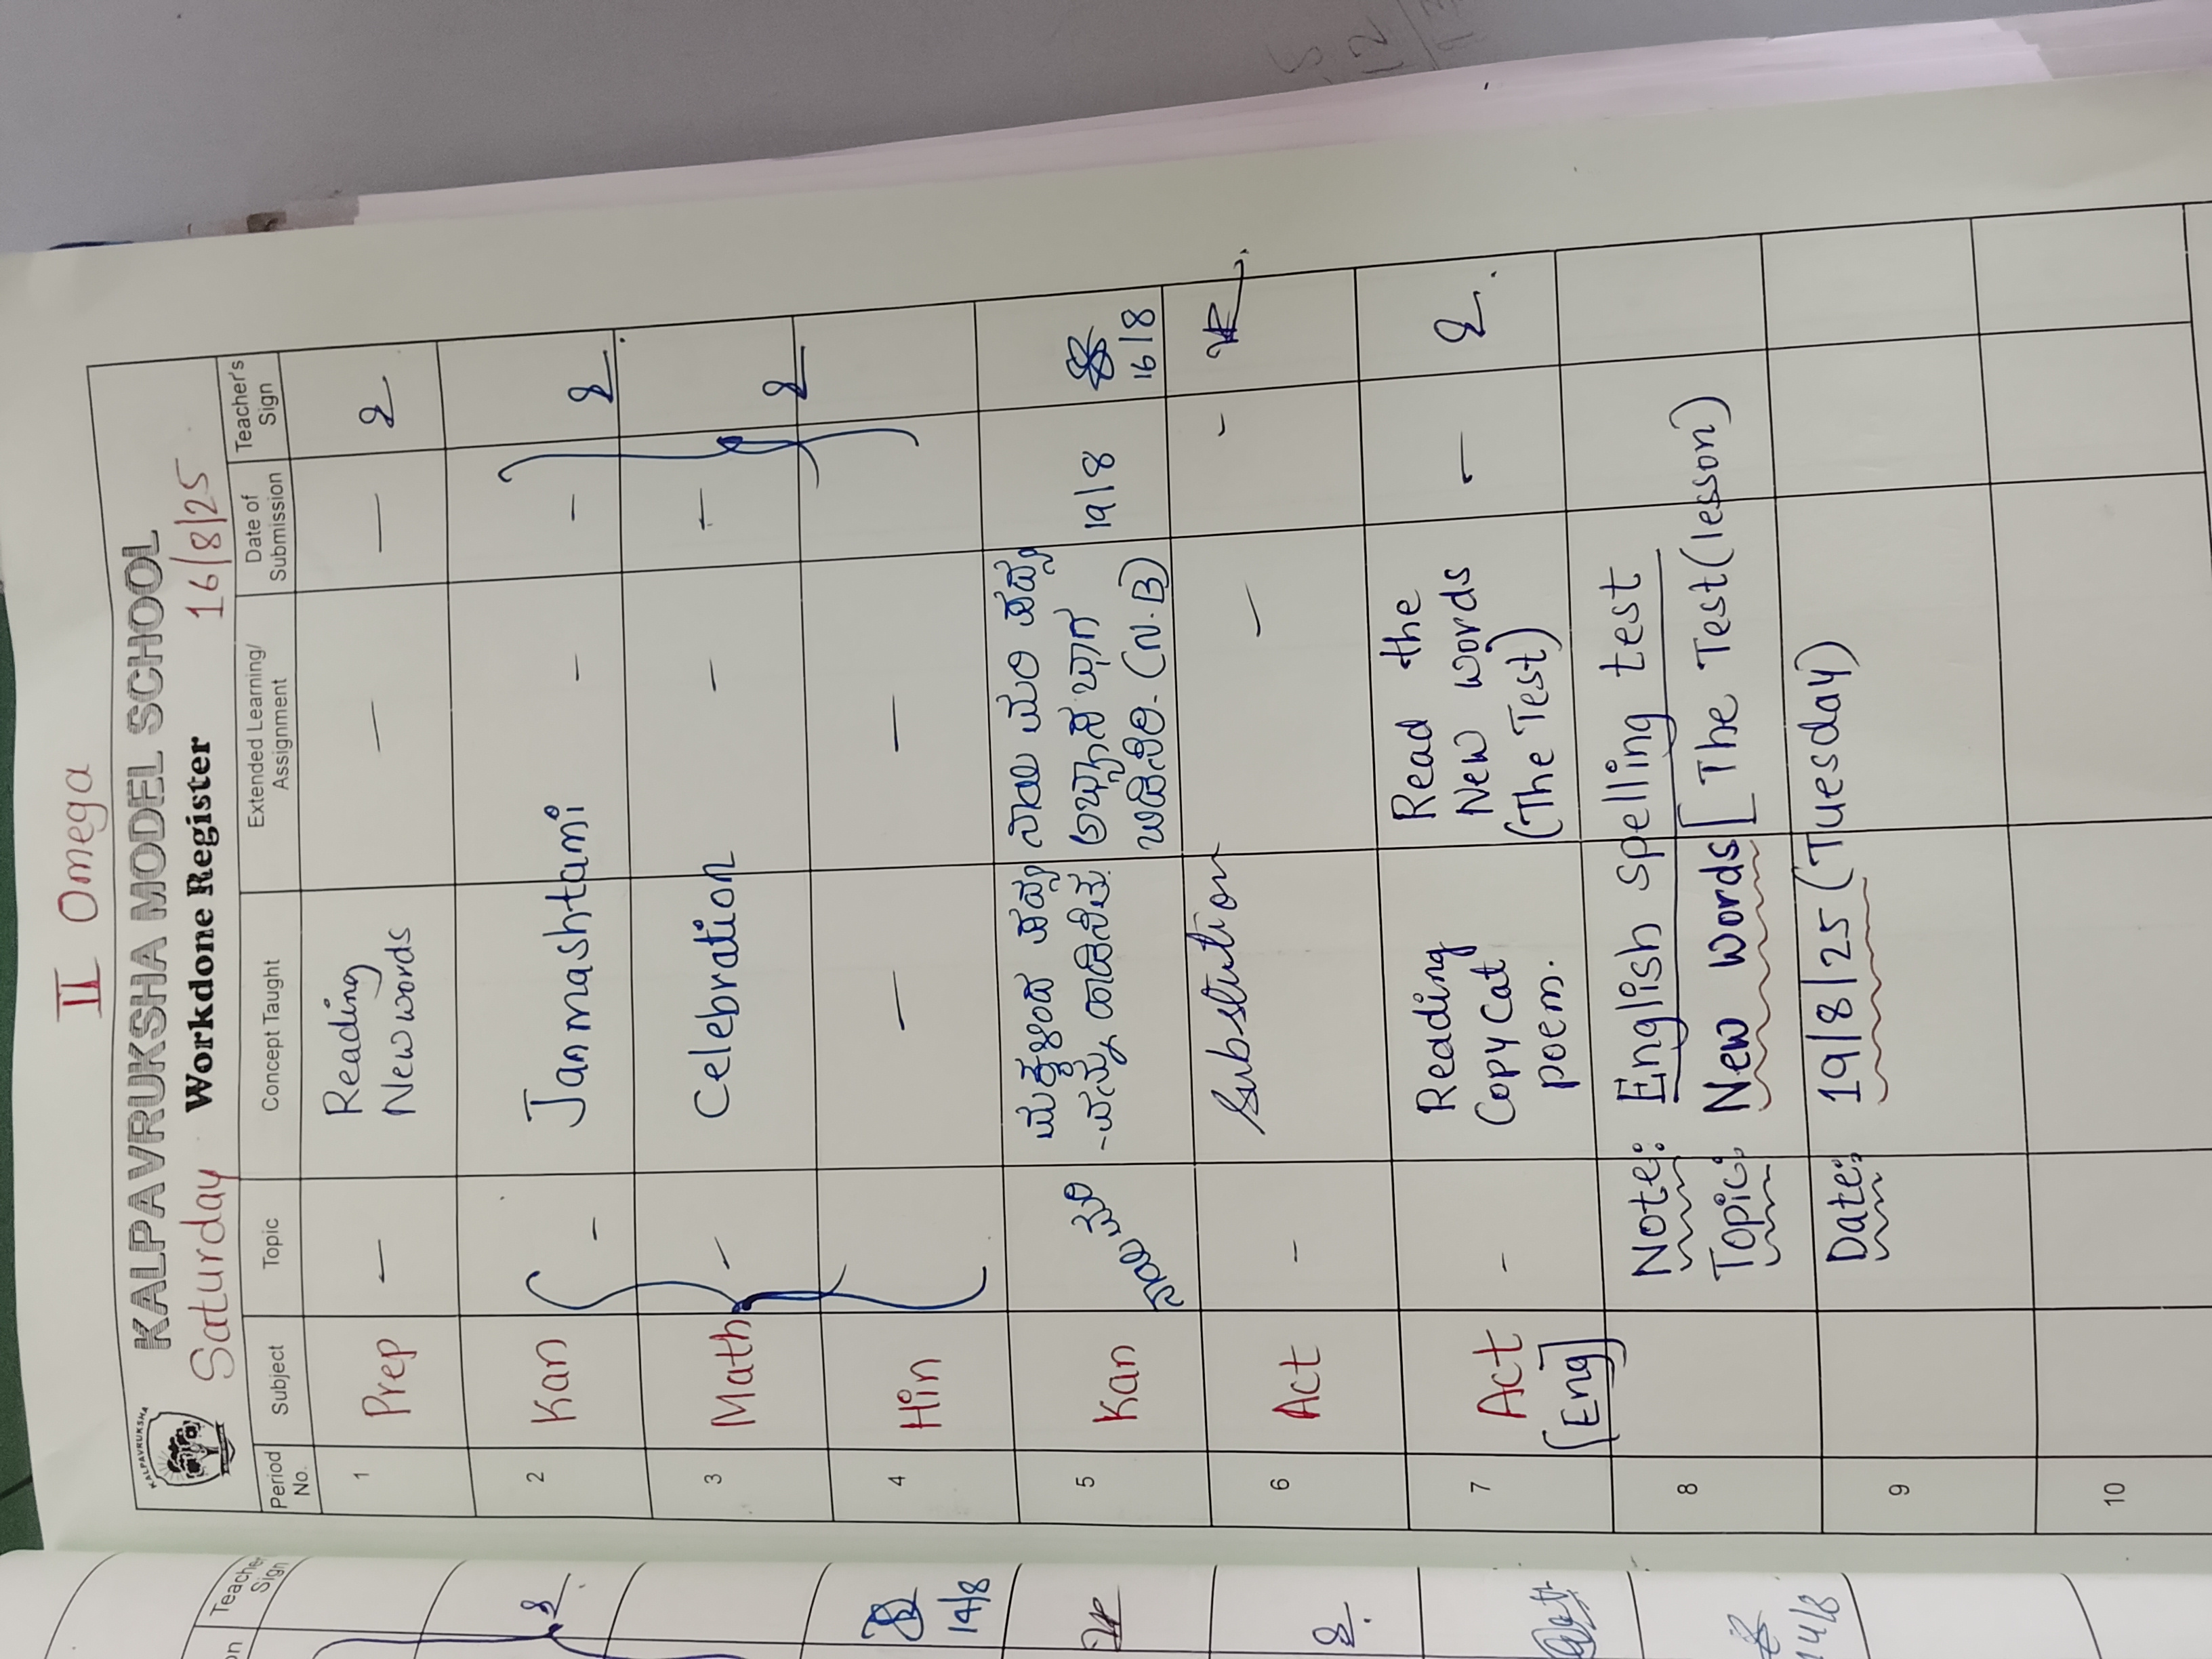 II Omega
KALPAVRUKSHA
KALPAVRUKSHA MODEL SCHOOL
Saturday Workdone Register 16/8/25
Period No. Subject Topic Concept Taught Extended Learning/ Assignment Date of Submission Teacher's Sign
1 Prep — Reading — —
New words
2 Kan - Janmashtami - -
3 Math - Celebration - -
4 Hin — —
5 Kan ನಾಯಿ ಮರಿ ಮಕ್ಕಳಿಂದ ಪದ್ಯ ನಾಯಿ ಮರಿ ಪದ್ಯ 19/8
-ವನ್ನು ಹಾಡಿಸಿದೆ. ಅಭ್ಯಾಸ ಭಾಗ 16/8
ಓದಿಸಿರಿ. (N.B)
6 Act - Substution - -
7 Act - Reading Read the -
[Eng] Copy Cat New words
poem. (The Test)
8 Note: English spelling test
Topic: New words [The Test (lesson)
9 Date: 19/8/25 (Tuesday)
10
Teacher Sign
on
14/8
14/8